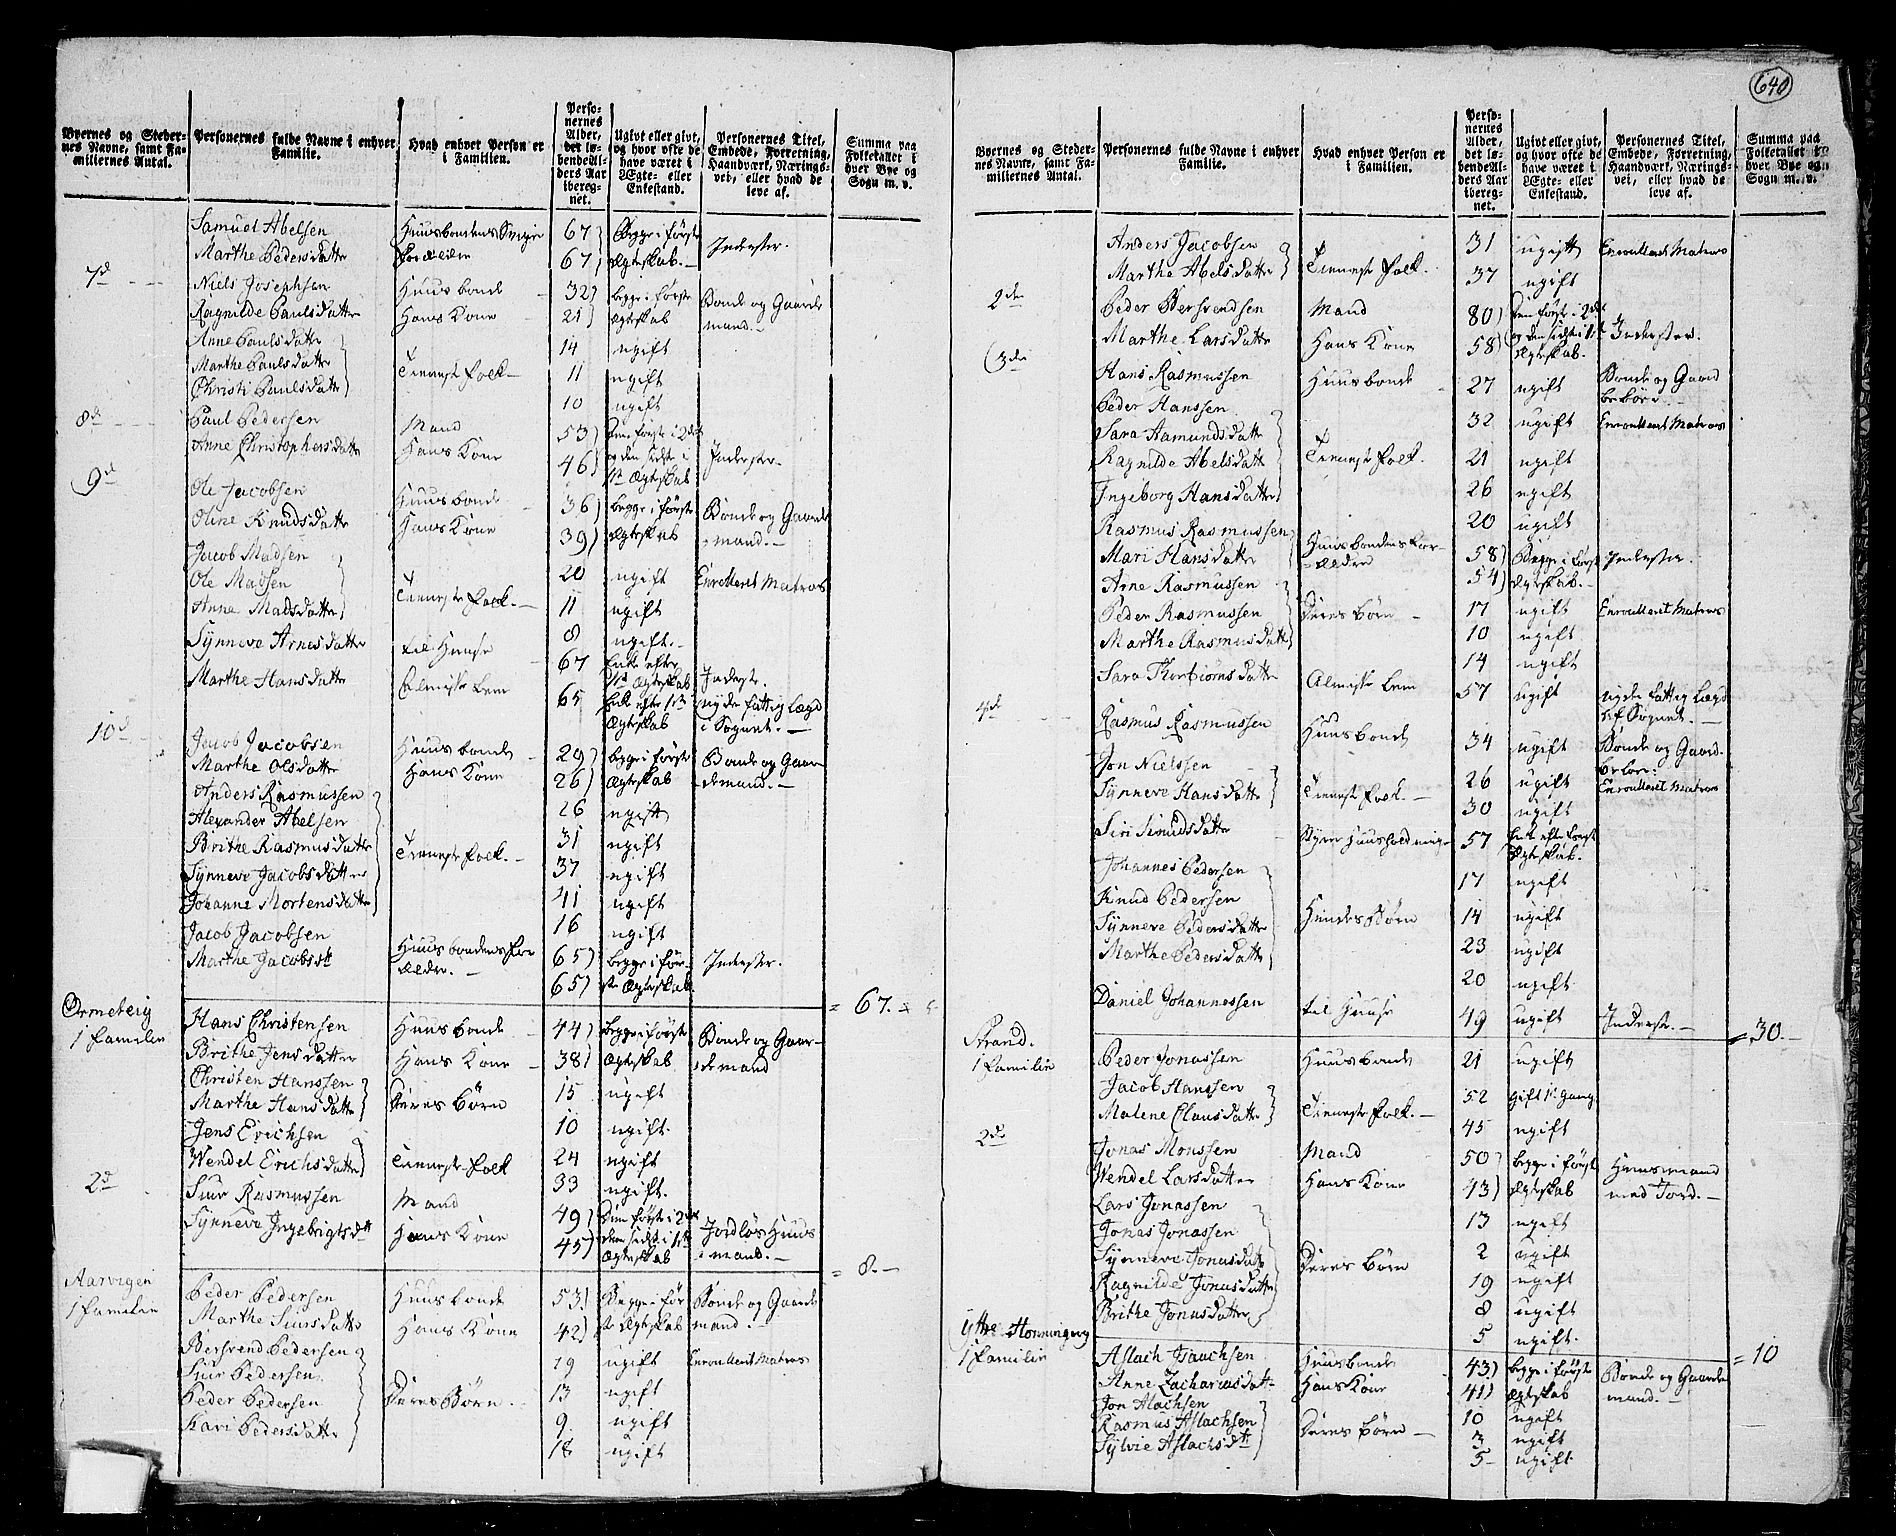 640
Byernes og Steder-
nes Navne, samt Fa-
miliernes Antal.
Personernes fulde Navne i enhver
Familie.
Hvad enhver Person er
i Familien.
Perso-
nernes
Alder,
det lø-
bende Al-
ders Aar
ibereg-
net.
Ugivt eller givt,
og hvor ofte de
have været i
Ægte- eller
Enkestand.
Personernes Titel,
Embede, Forretning,
Haandværk, Nærings-
vei, eller hvad de
leve af.
Summa paa
Folketallet i
hver Bye og
Sogn m. v.
Samuel Abelsen Huusbondens Svigir 67 Begge i første Inderster.
Marthe Pedersdatter forældre 67 Ægteskab.
7d Niels Josephsen Huusbonde 32 begge i første Bonde og Gaard
Ragnilde Paulsdatter Hans Kone 21 Ægteskab mand.
Anne Paulsdatter 14 ugift
Marthe Paulsdatter Tienestefolk 11 ugift
Christi Paulsdatter 10 ugift
8d Paul Pedersen Mand 53 den første i 2det
Anne Christophersdatter Hans Kone 46 og den sidst i Inderster
1te Ægteskab
9d Ole Jacobsen Huusbonde 36 begge i første Bonde og Gaard
Oline Knudsdatter Hans Kone 39 Ægteskab mand.
Jacob Madsen 20 ugift Enrolleret Matros
Ole Madsen Tienestefolk. 11 ugift
Anne Madsdatter 8 ugift.
Synneve Arnesdatter til Huuse 67 Enke efter
1te Ægteskab Inderst.
Marthe Hansdatter Almisse Lem 65 Enke efter 1te nyde fattig Lægd
Ægteskab i Sognet.
10d Jacob Jacobsen Huusbonde 29 begge i første Bonde og Gaar
Marthe Olsdatter Hans Kone 26 Ægteskab demand.
Anders Rasmussen 26 ugift
Alexander Abelsen 31 ugift
Brithe Rasmusdatter Tienestefolk. 37 ugift
Synneve Jacobsdatter 41 ugift
Johanne Mortensdatter 16 ugift
Jacob Jacobsen Huusbondens for 65 begge i før- Inderster.
Marthe Jacobsdt ældre. 65 ste Ægteskab.
= 67.
Ormeberg
1 familie
Hans Christensen Huusbonde 44 begge i første Bonde og Gaar-
Brithe Jensdatter Hans Kone 38 Ægteskab demand
Christen Hanssen Deres børn 15 ugift
Marthe Hansdatter 10 ugift.
Jens Erichsen Tienestefolk 24 ugift
Wendel Erichsdatter 33 ugift.
2d Siur Rasmussen Mand 49 Den første i 2det Jordløs Huus
Synneve Ingebrigtsdtt Hans Kone 45 den sidst i 1te mand.
Ægteskab
= 8.
Aarvigen
1 familie
Peder Pedersen Huusbonde 53 Begge i før Bonde og Gaard
Marthe Siursdatter Hans Kone 42 ste Ægteskab mand.
Bersvend Pedersen 19 ugift Enrolleret Matros
Siur Pedersen 13 ugift
Peder Pedersen Deres Børn. 9 ugift
Kari Pedersdatter 18 ugift
Byernes og Steder-
nes Navne, samt Fa-
miliernes Antal.
Personernes fulde Navne i enhver
Familie.
Hvad enhver Person er
i Familien.
Perso-
nernes
Alder,
det lø-
bende Al-
ders Aar
ibereg-
net.
Ugivt eller givt,
og hvor ofte de
have været i
Ægte- eller
Enkestand.
Personernes Titel,
Embede, Forretning,
Haandværk, Nærings-
vei, eller hvad de
leve af.
Summa paa
Folketallet i
hver Bye og
Sogn m. v.
Anders Jacobsen 31 ugift Enrolleret Matros
Marthe Abelsdatter Tienestefolk. 37 ugift
2den Peder Bersvendsen Mand 80 den først i 2det
Marthe Larsdatter Hans Kone 58 og den sidst i 1te Inderster.
Ægteskab.
3die Hans Rasmussen Huusbonde 27 ugift Bonde og Gaard
beboer.
Peder Hanssen 32 ugift Enrolleret Matros
Sara Aamundsdatter Tienestefolk. 21 ugift
Ragnilde Abelsdatter 26 ugift
Ingeborg Hansdatter 20 ugift
Rasmus Rasmussen Huusbondens for- 58 Begge i først Inderster.
Mari Hansdatter ældre 54 Ægteskab.
Arne Rasmussen 17 ugift Enrolleret Matros
Peder Rasmussen Deres børn 10 ugift
Marthe Rasmusdatter 14 ugift
Sara Thorbiørnsdatter Almisse Lem 57 ugift nyde fattig Lægd
af Sognet.
4de Rasmus Rasmussen Huusbonde 34 ugift Bonde og Gaard.
beboer.
Jon Nielssen 26 ugift Enrolleret Matros
Synneve Hansdatter Tienestefolk. 30 ugift
Siri Simundsdatter Styrer Huusholdning 57 Enke efter først
Ægteskab.
Johannes Pedersen 17 ugift
Knud Pedersen Hendes Børn 14 ugift
Synneve Pedersdatter 23 ugift
Marthe Pedersdatter 20 ugift
Daniel Johannessen til Huuse 49 ugift Inderst.
= 30.
Strand.
1 familie
Peder Jonassen Huusbonde 21 ugift
Jacob Hanssen 52 gift 1. gang
Malene Clausdatter Tienestefolk. 45 ugift
2de Jonas Monssen Mand 50 begge i først Huusmand
Wendel Larsdatter Hans Kone 43 Ægteskab med Jord.
Lars Jonassen 13 ugift
Jonas Jonassen 2 ugift
Synneve Jonasdatter Deres børn 19 ugift
Ragnilde Jonasdatter 8 ugift
Brithe Jonasdatter 5 ugift.
= 10
Yttre Honningevg
1 familie
Aslach Isaachsen Huusbonde 43 begge i første Bonde og Gaarde
Anne Zachariasdatter Hans Kone 41 Ægteskab mand.
Jon Aslachsen 10 ugift
Rasmus Aslachsen Deres børn 3 ugift
Sylvie Aslachsdtt 5 ugift.